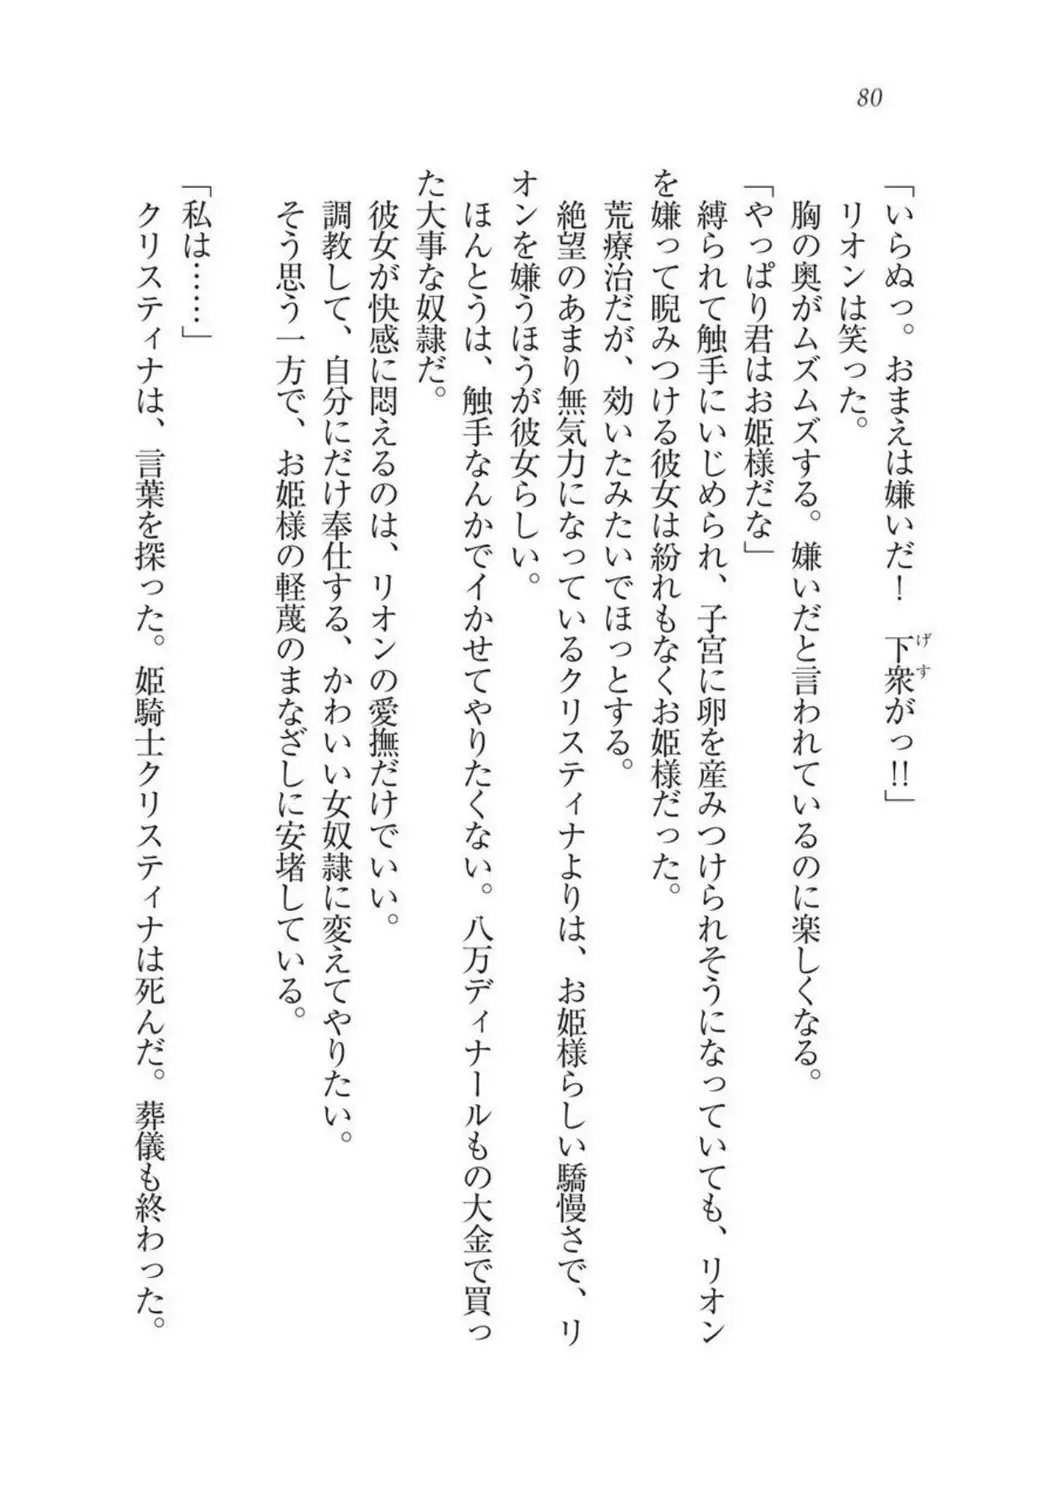 80
「いらぬっ。おまえは嫌いだ！　下衆がっ!!」
げす
リオンは笑った。
胸の奥がムズムズする。嫌いだと言われているのに楽しくなる。
「やっぱり君はお姫様だな」
縛られて触手にいじめられ、子宮に卵を産みつけられそうになっていても、リオン
を嫌って睨みつける彼女は紛れもなくお姫様だった。
荒療治だが、効いたみたいでほっとする。
絶望のあまり無気力になっているクリスティナよりは、お姫様らしい驕慢さで、リ
オンを嫌うほうが彼女らしい。
ほんとうは、触手なんかでイかせてやりたくない。八万ディナールもの大金で買っ
た大事な奴隷だ。
彼女が快感に悶えるのは、リオンの愛撫だけでいい。
調教して、自分にだけ奉仕する、かわいい女奴隷に変えてやりたい。
そう思う一方で、お姫様の軽蔑のまなざしに安堵している。
「私は……」
クリスティナは、言葉を探った。姫騎士クリスティナは死んだ。葬儀も終わった。